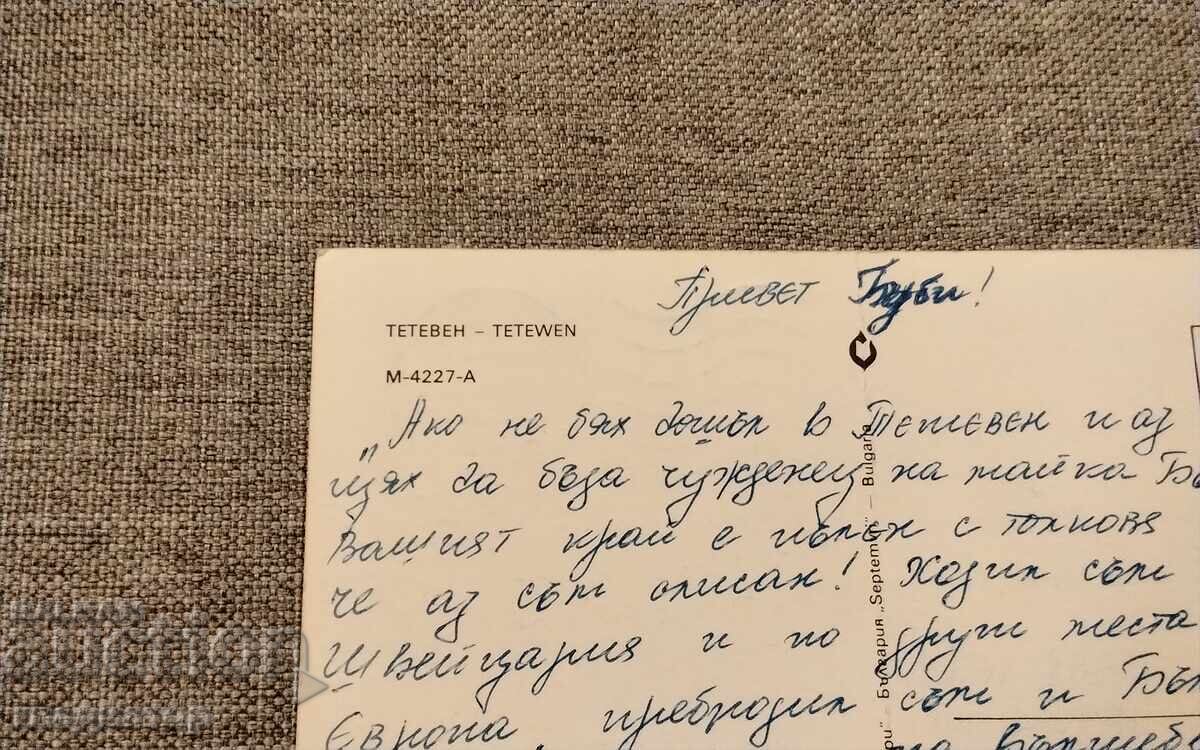 Привет Буби!
ТЕТЕВЕН – TETEWEN
М-4227-А
„Ако не бях дошъл в Тетевен и аз
щях да бъда чужденец на майка Бъ
Вашият край е пълен с толкова
че аз съм описан! Ходил съм
Швейцария и по други места
Европа, пребродил съм и Бъл
на вълшеб
България „Septemvri“ – Bulgaria
BALKAN
auction